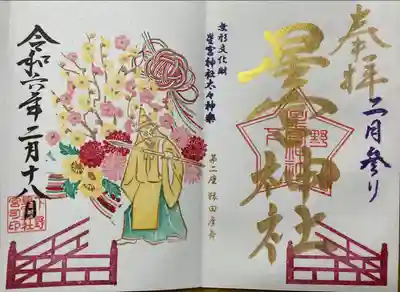 奉拝
二月参り
星宮神社
無形文化財
星宮神社太々神楽
第二座 猿田彦舞
令和六年二月十八日